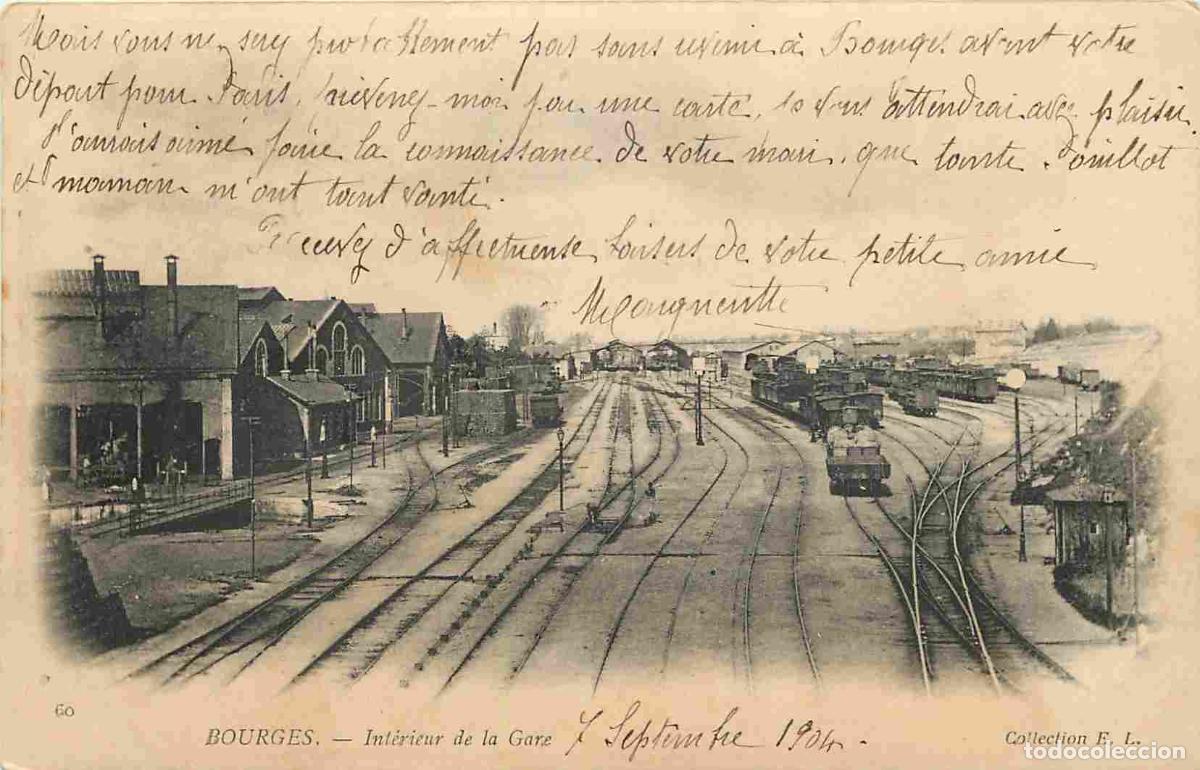 Mais vous ne serez probablement pas sans revenir à Bourges avant votre
départ pour Paris, prévenez-moi par une carte, je vous attendrai avec plaisir.
J'aurais aimé faire la connaissance de votre mari, que tante Pouillot
et maman m'ont tant vanté.
Recevez d'affectueuse baisers de votre petite amie
Marguerite
60
BOURGES. — Intérieur de la Gare
7 Septembre 1904.
Collection E. L.
todocoleccion